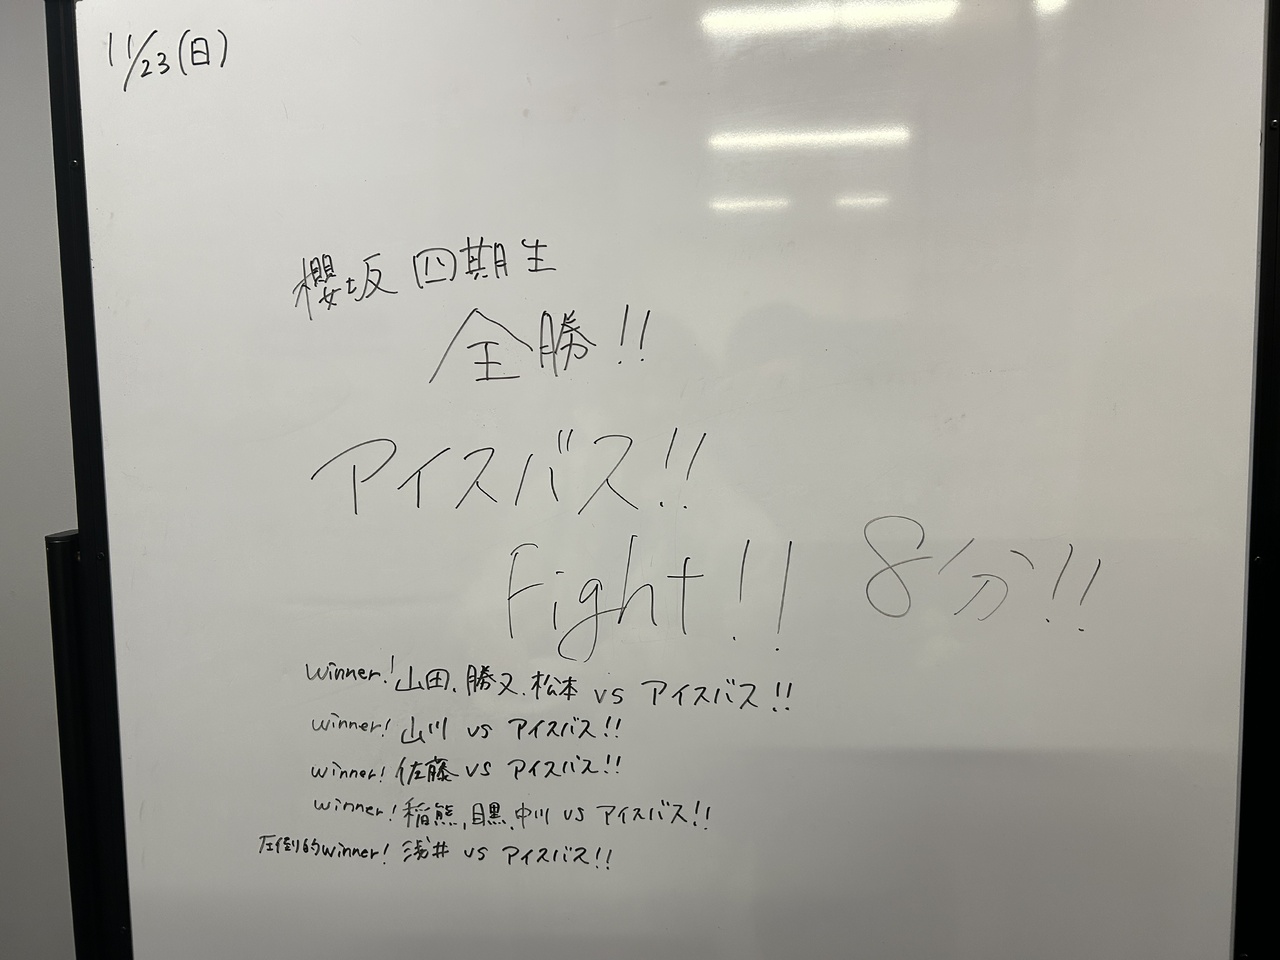 11/23(日)
櫻坂 四期生
全勝!!
アイスバス!!
Fight!! 8分!!
winner! 山田、勝又、松本 vs アイスバス!!
winner! 山川 vs アイスバス!!
winner! 佐藤 vs アイスバス!!
winner! 稲熊、目黒、中川 vs アイスバス!!
圧倒的winner! 浅井 vs アイスバス!!